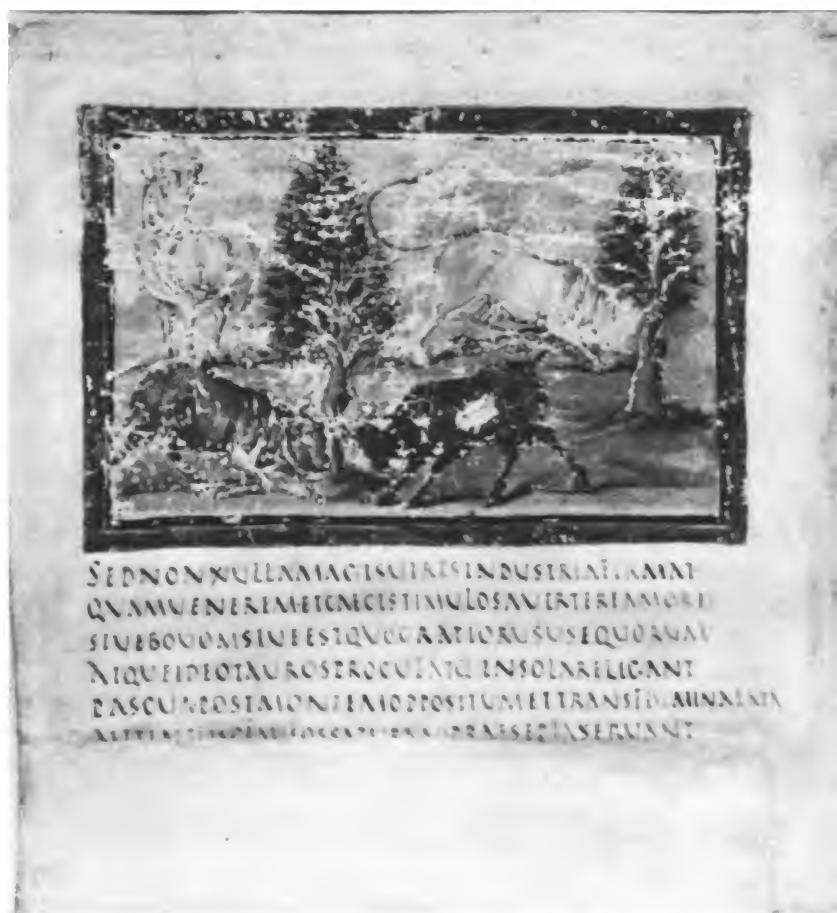 SEDNONULLAMAGISUIRESINDUSTRIAFIRMAT
QUAMUENEREMETCAECISTIMULOSAUERTEREAMORI
SIUEBOUOMSIUEESTQUOIGRATIORUSUSEQUORUM
ATQUEIDEOTAUROSPROCULATQ·INSOLARELIGANT
PASCUAPOSTMONTEMOPPOSITUMETTRANSFLUMINALATA
PRAESEPIASERUANT